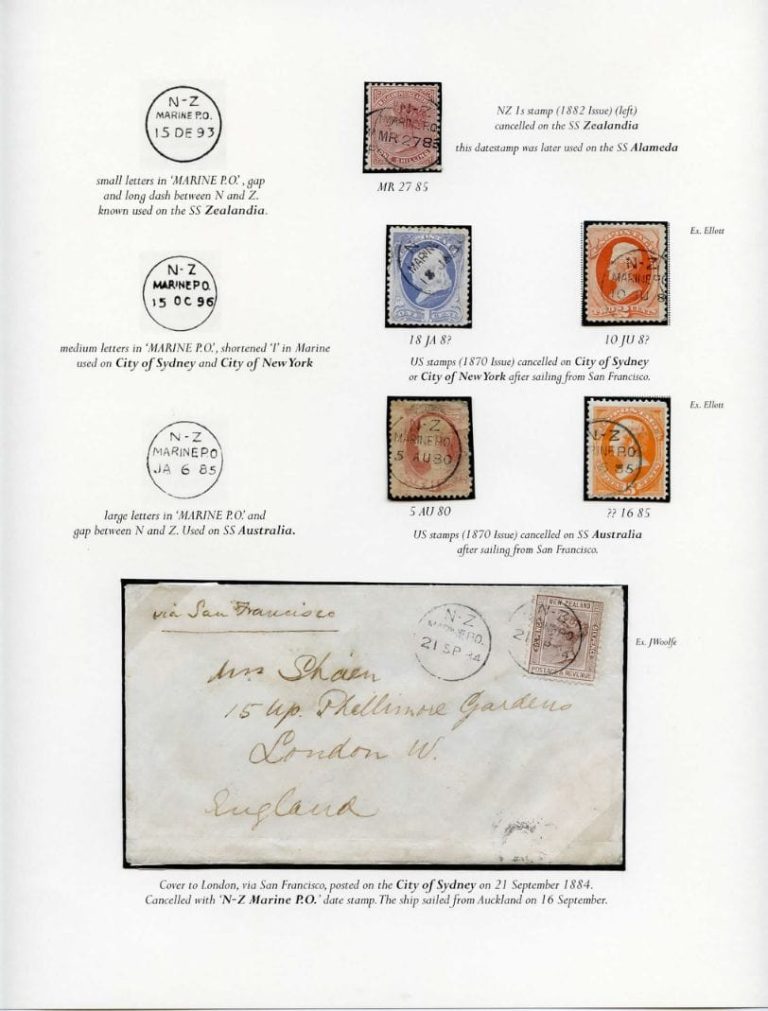 N-Z
MARINE P.O.
15 DE 93
small letters in 'MARINE P.O.', gap
and long dash between N and Z.
known used on the SS Zealandia.
MARINE P.O.
MR 27 85
ONE SHILLING
MR 27 85
NZ 1s stamp (1882 Issue) (left)
cancelled on the SS Zealandia
this datestamp was later used on the SS Alameda
N-Z
MARINE P.O.
15 OC 96
medium letters in 'MARINE P.O.', shortened 'I' in Marine
used on City of Sydney and City of New York
N-Z
MARIN
18 JA
18 JA 8?
N-Z
MARINE P.O.
10 JU 8
10 JU 8?
Ex. Ellott
US stamps (1870 Issue) cancelled on City of Sydney
or City of New York after sailing from San Francisco.
N-Z
MARINE P.O.
JA 6 85
large letters in 'MARINE P.O.' and
gap between N and Z. Used on SS Australia.
N-Z
MARINE P.O.
5 AU 80
5 AU 80
N-Z
INE P.O.
85
?? 16 85
Ex. Ellott
US stamps (1870 Issue) cancelled on SS Australia
after sailing from San Francisco.
via San Francisco
N-Z
MARINE P.O.
21 SP 84
NEW-ZEALAND
N-Z
POSTAGE & REVENUE
Mrs Shaen
15 Up. Phellimore Gardens
London W.
England
Ex. JWoolfe
Cover to London, via San Francisco, posted on the City of Sydney on 21 September 1884.
Cancelled with 'N-Z Marine P.O.' date stamp. The ship sailed from Auckland on 16 September.